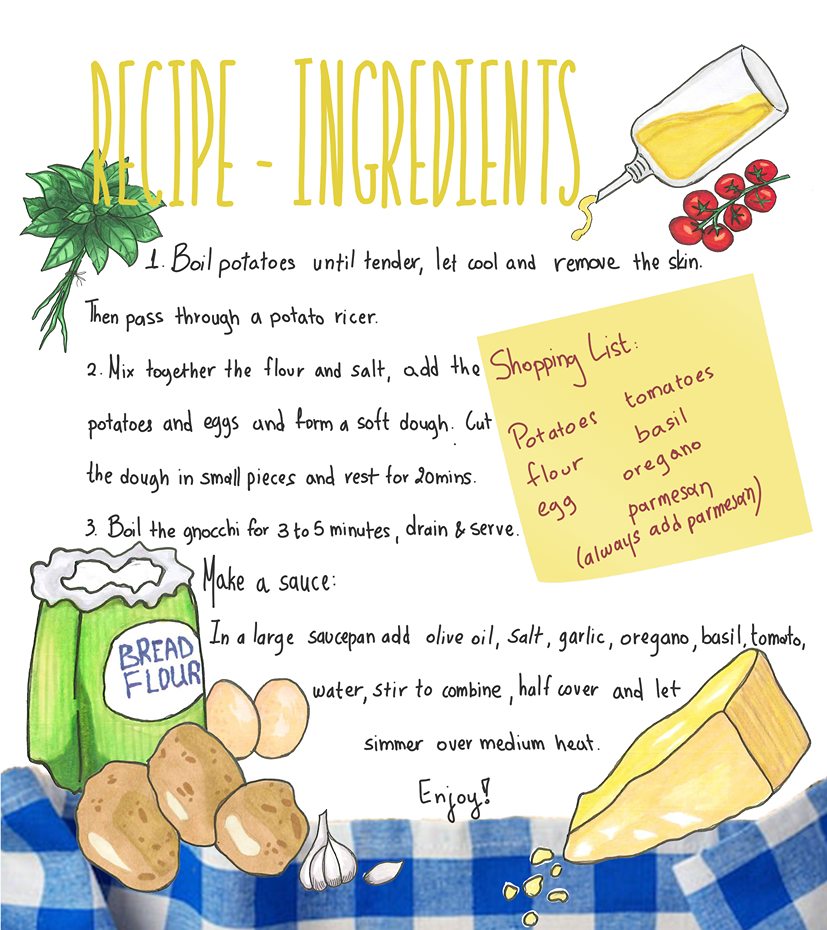 RECIPE - INGREDIENTS
1. Boil potatoes until tender, let cool and remove the skin.
Then pass through a potato ricer.
2. Mix together the flour and salt, add the
potatoes and eggs and form a soft dough. Cut
the dough in small pieces and rest for 20mins.
3. Boil the gnocchi for 3 to 5 minutes, drain & serve.
Shopping List:
Potatoes
flour
egg
tomatoes
basil
oregano
parmesan
(always add parmesan)
Make a sauce:
In a large saucepan add olive oil, salt, garlic, oregano, basil, tomato,
water, stir to combine, half cover and let
simmer over medium heat.
Enjoy!
BREAD
FLOUR